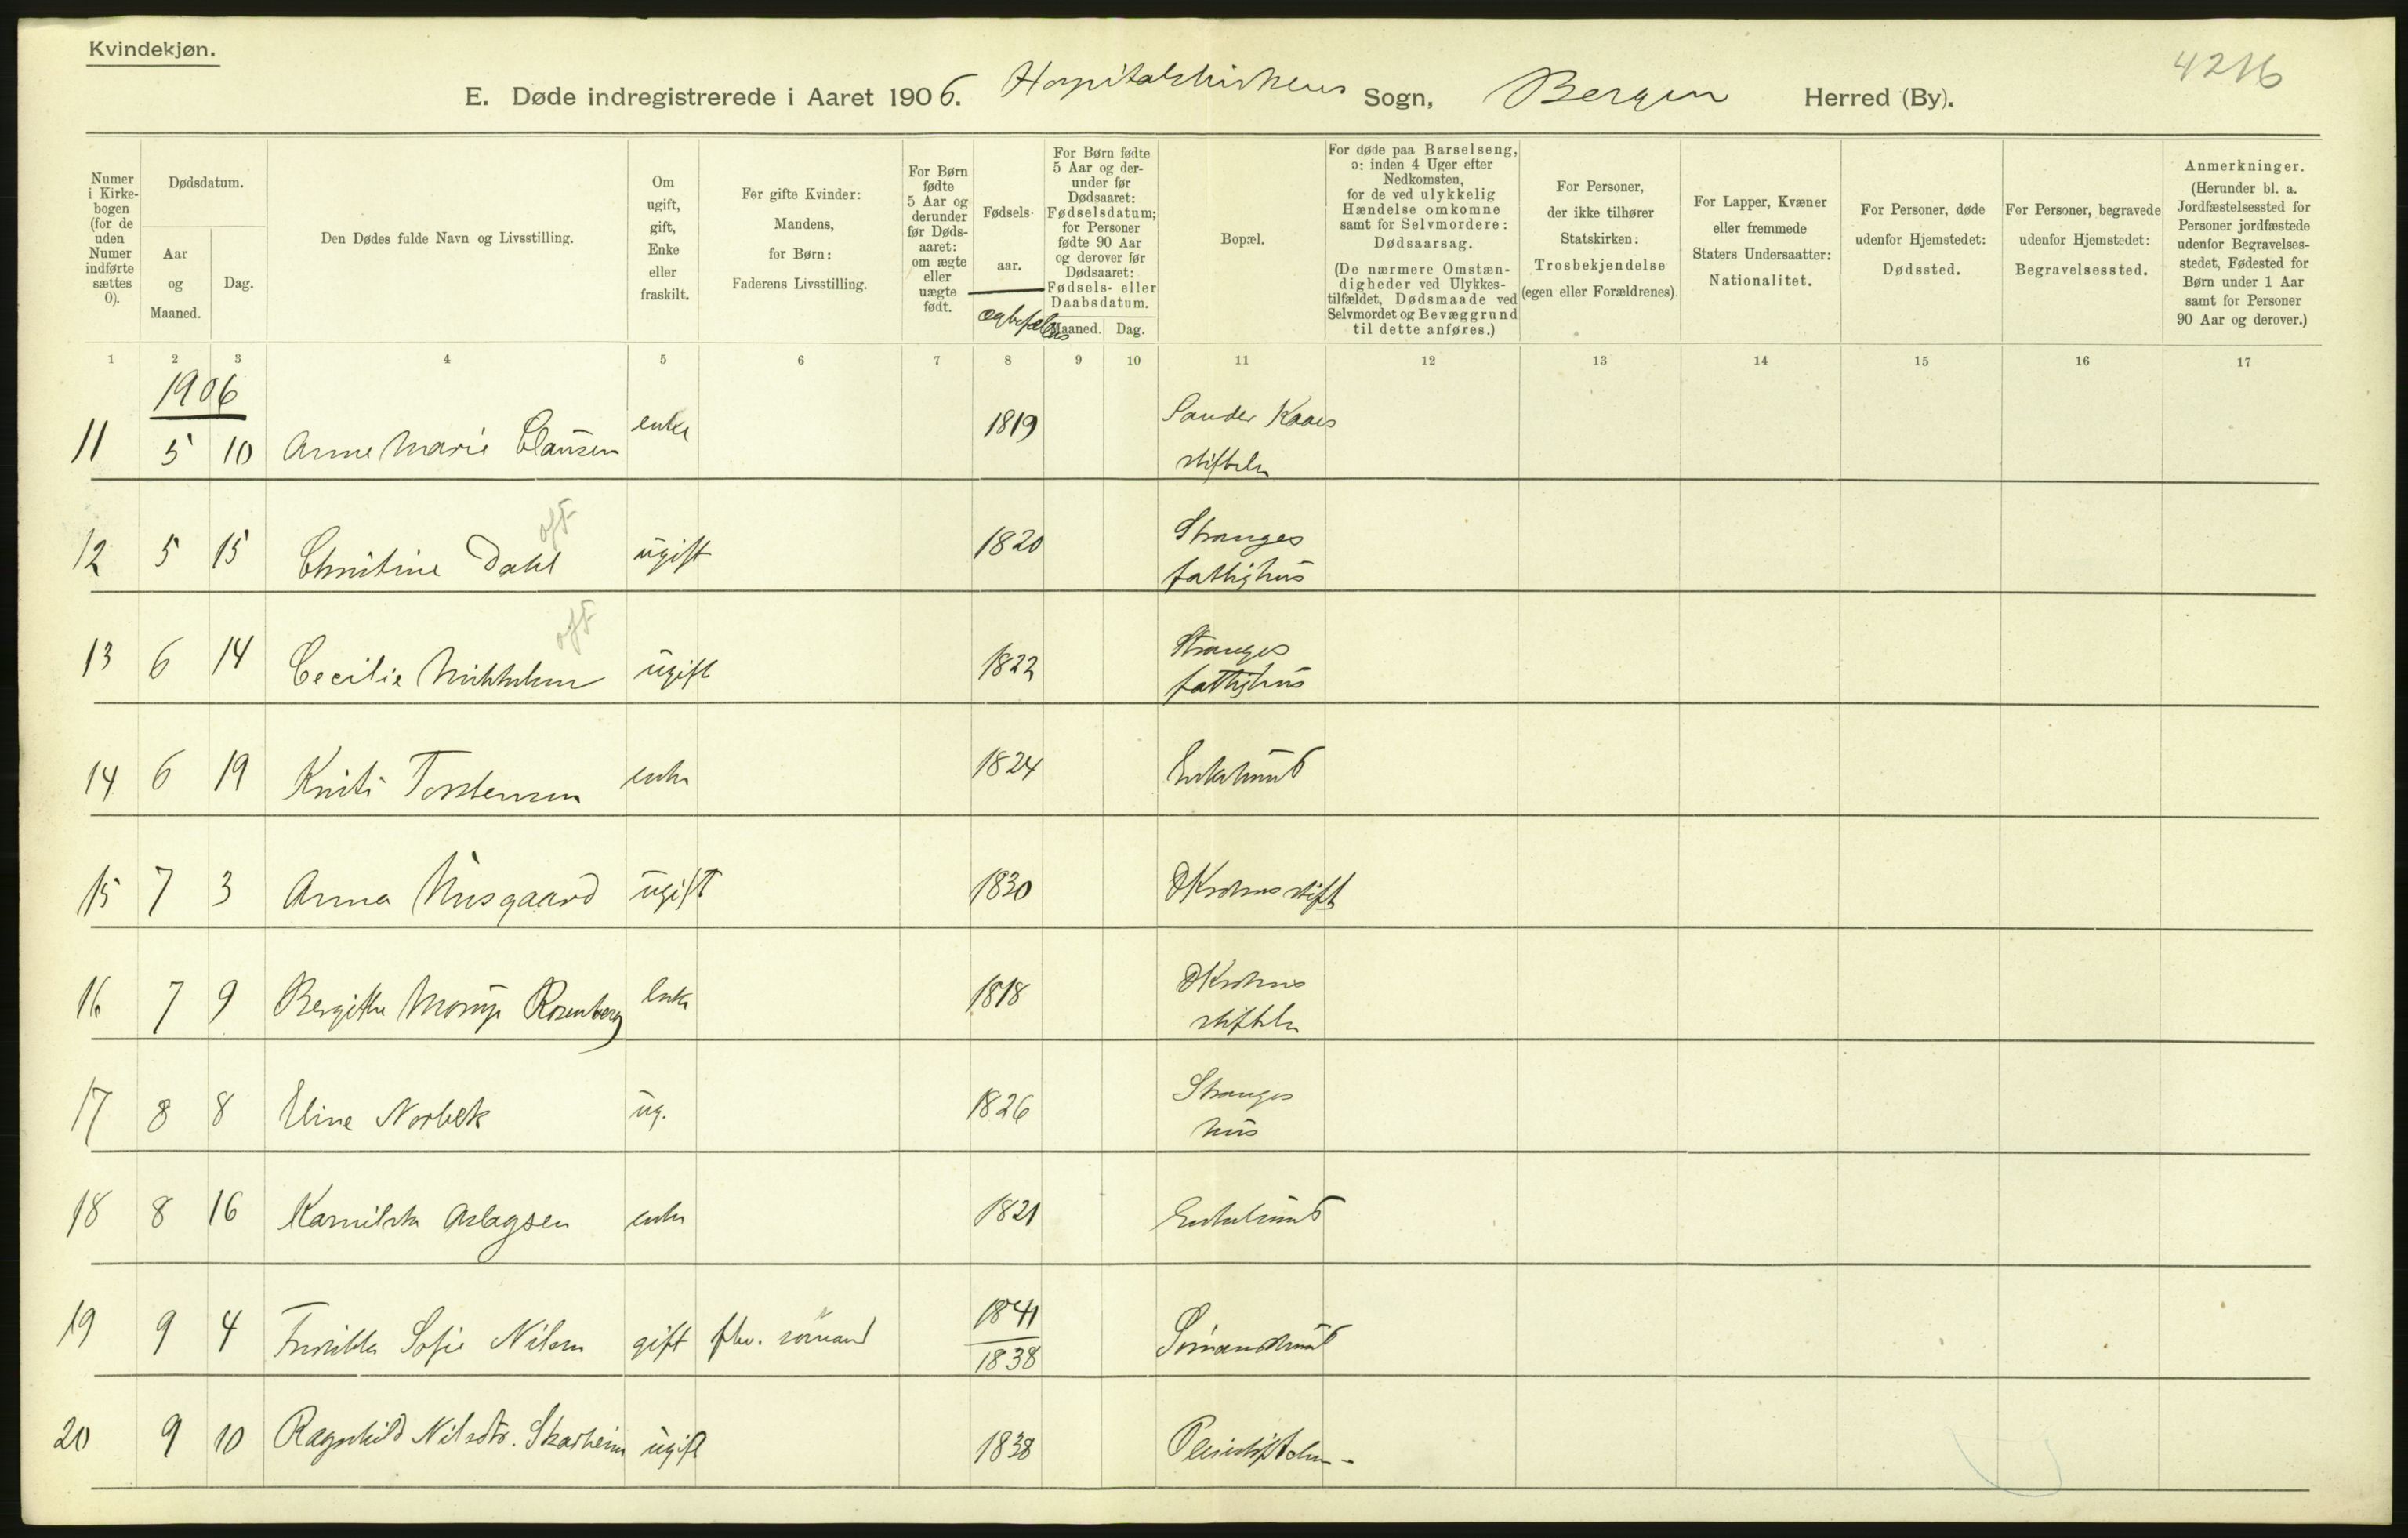 Kvindekjøn.
4216
E. Døde indregistrerede i Aaret 1906. Hospitalskirkens Sogn, Bergen Herred (By).
Numer i Kirkebogen (for de uden Numer indførte sættes 0).
Dødsdatum.
Aar og Maaned.
Dag.
Den Dødes fulde Navn og Livsstilling.
Om ugift, gift, Enke eller fraskilt.
For gifte Kvinder: Mandens, for Børn: Faderens Livsstilling.
For Børn fødte 5 Aar og derunder før Dødsaaret: om ægte eller uægte født.
Fødselsaar.
For Børn fødte 5 Aar og derunder før Dødsaaret: Fødselsdatum; for Personer fødte 90 Aar og derover før Dødsaaret: Fødsels- eller Daabsdatum.
Maaned. Dag.
Bopæl.
For døde paa Barselseng, ɔ: inden 4 Uger efter Nedkomsten, for de ved ulykkelig Hændelse omkomne samt for Selvmordere: Dødsaarsag. (De nærmere Omstændigheder ved Ulykkestilfældet, Dødsmaade ved Selvmordet og Bevæggrund til dette anføres.)
For Personer, der ikke tilhører Statskirken: Trosbekjendelse (egen eller Forældrenes).
For Lapper, Kvæner eller fremmede Staters Undersaatter: Nationalitet.
For Personer, døde udenfor Hjemstedet: Dødssted.
For Personer, begravede udenfor Hjemstedet: Begravelsessted.
Anmerkninger. (Herunder bl. a. Jordfæstelsessted for Personer jordfæstede udenfor Begravelsesstedet, Fødested for Børn under 1 Aar samt for Personer 90 Aar og derover.)
1 2 3 4 5 6 7 8 9 10 11 12 13 14 15 16 17
1906
11 5 10 Anne Marie Clausen enke 1819 Sander Kaaes
stiftelse
12 5 15 Christine Dahl off ugift 1820 Stranges
fattighus
13 6 14 Cecilie Mikkelsen off ugift 1822 Stranges
fattighus
14 6 19 Kristi Torstensen enke 1824 Enkehus
15 7 3 Anna Husgaard ugift 1830 D Krohns stift
16 7 9 Bergitte Monrip Rosenberg Enke 1818 D Krohns
stiftelse
17 8 8 Eline Norbek ug. 1826 Stranges
hus
18 8 16 Aslagsen enke 1821
19 9 4 Sofie Nilsen gift fhv. sømand 1841
1838 Sømandshus
20 9 10 Ragnhild Nilsdtr. Skarheim ugift 1838